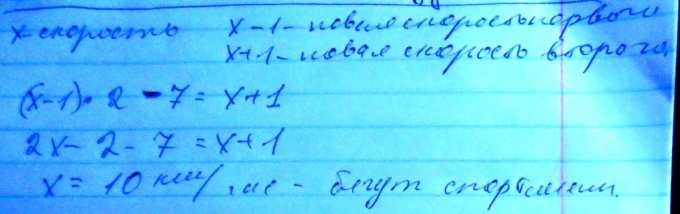 x-скорость x-1-новая скорость первого
x+1-новая скорость второго
(x-1)·2-7=x+1
2x-2-7=x+1
x=10 км/час - бегут спортсмены.